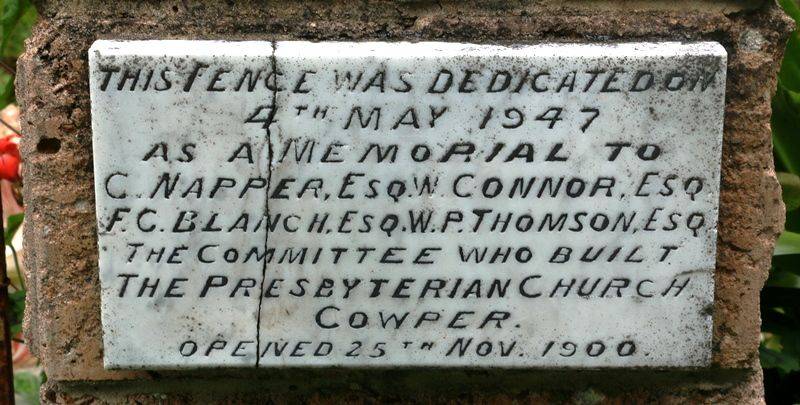 THIS FENCE WAS DEDICATED ON
4TH MAY 1947
AS A MEMORIAL TO
C. NAPPER, ESQ. W. CONNOR, ESQ
F.C. BLANCH, ESQ. W.P. THOMSON, ESQ
THE COMMITTEE WHO BUILT
THE PRESBYTERIAN CHURCH
COWPER.
OPENED 25TH NOV. 1900.